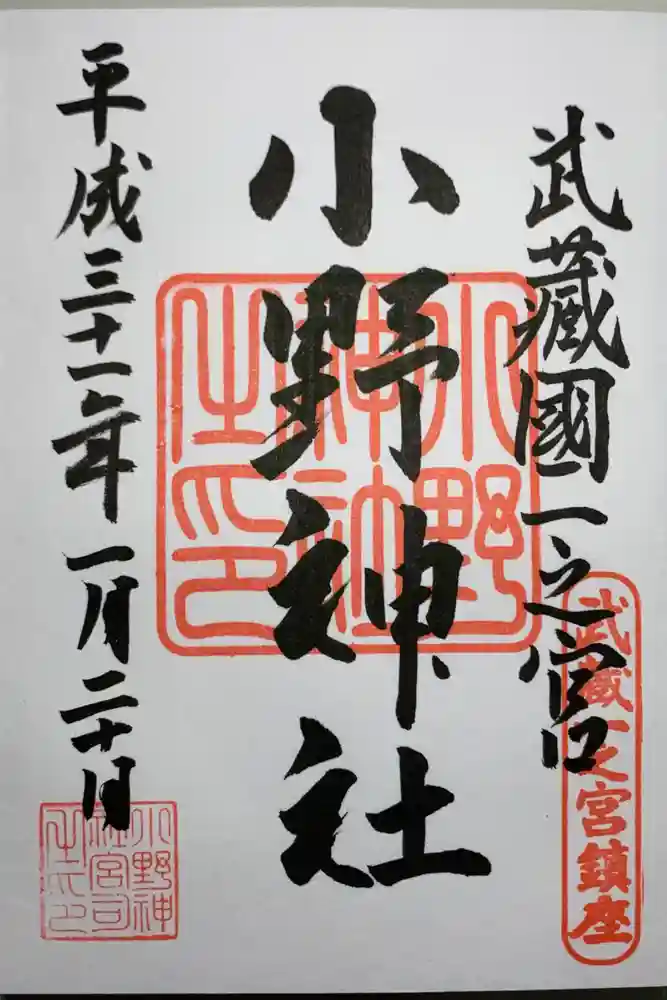 武蔵國一之宮
武蔵一之宮鎮座
小野神社
小野
神社
之印
平成三十一年一月二十日
小野神
社宮司
之印